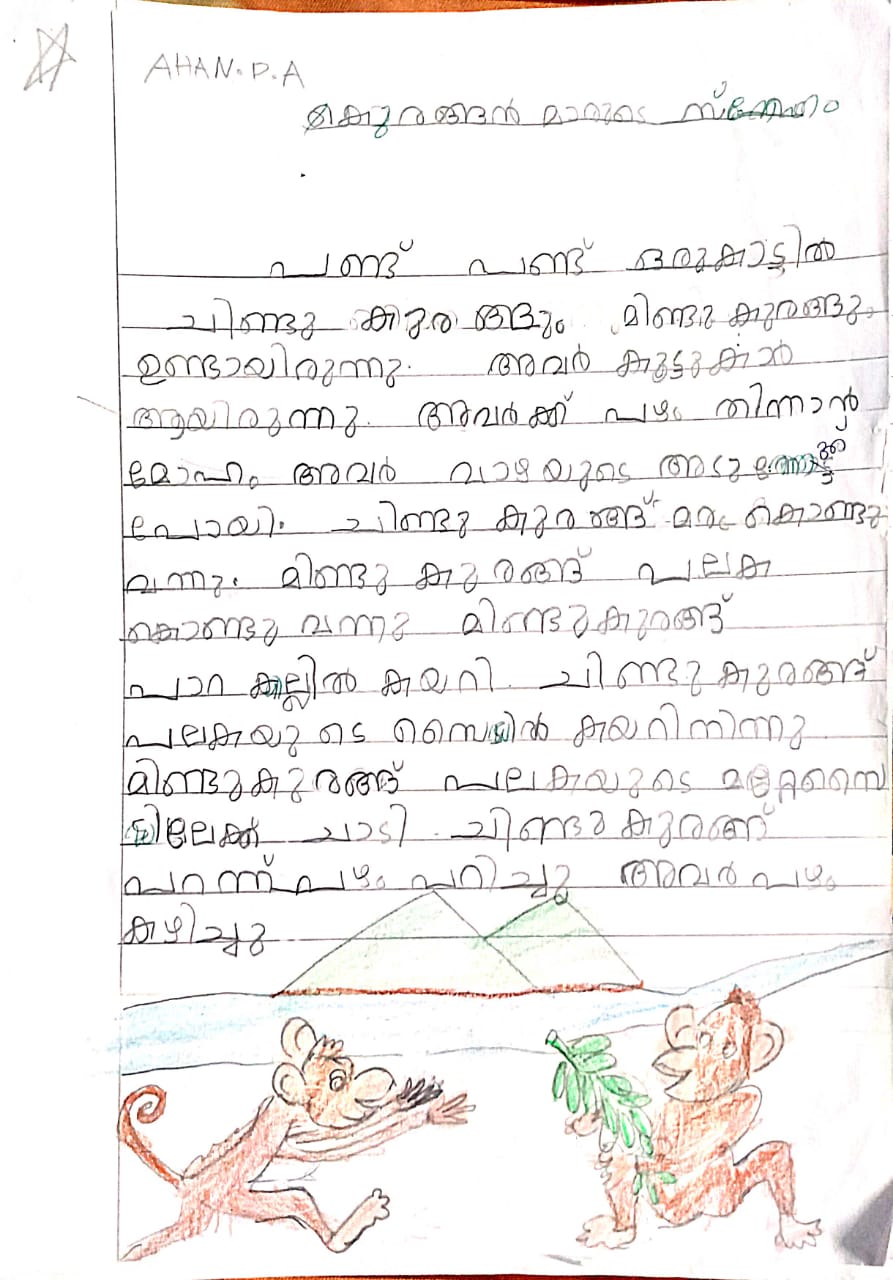 AHAN.P.A
കുരങ്ങൻ മാരുടെ സ്നേഹം
പണ്ട് പണ്ട് ഒരുകാട്ടിൽ
ചിണ്ടു കുരങ്ങും മിണ്ടു കുരങ്ങും
ഉണ്ടായിരുന്നു. അവർ കൂട്ടുകാർ
ആയിരുന്നു. അവർക്ക് പഴം തിന്നാൻ
മോഹം അവർ വാഴയുടെ അടു
പോയി. ചിണ്ടു കുരങ്ങ് മരം കൊണ്ടു
വന്നു. മിണ്ടു കുരങ്ങ് പലക
കൊണ്ടു വന്നു മിണ്ടുകുരങ്ങ്
പാറ കല്ലിൽ കയറി. ചിണ്ടു കുരങ്ങ്
പലകയു ടെ സൈഡിൽ കയറിനിന്നു
മിണ്ടുകുരങ്ങ് പലകയുടെ മറ്റേസൈ
ഡിലേക്ക് ചാടി. ചിണ്ടു കുരങ്ങ്
പറന്ന് പഴം പറിച്ചു അവർ പഴം
കഴിച്ചു